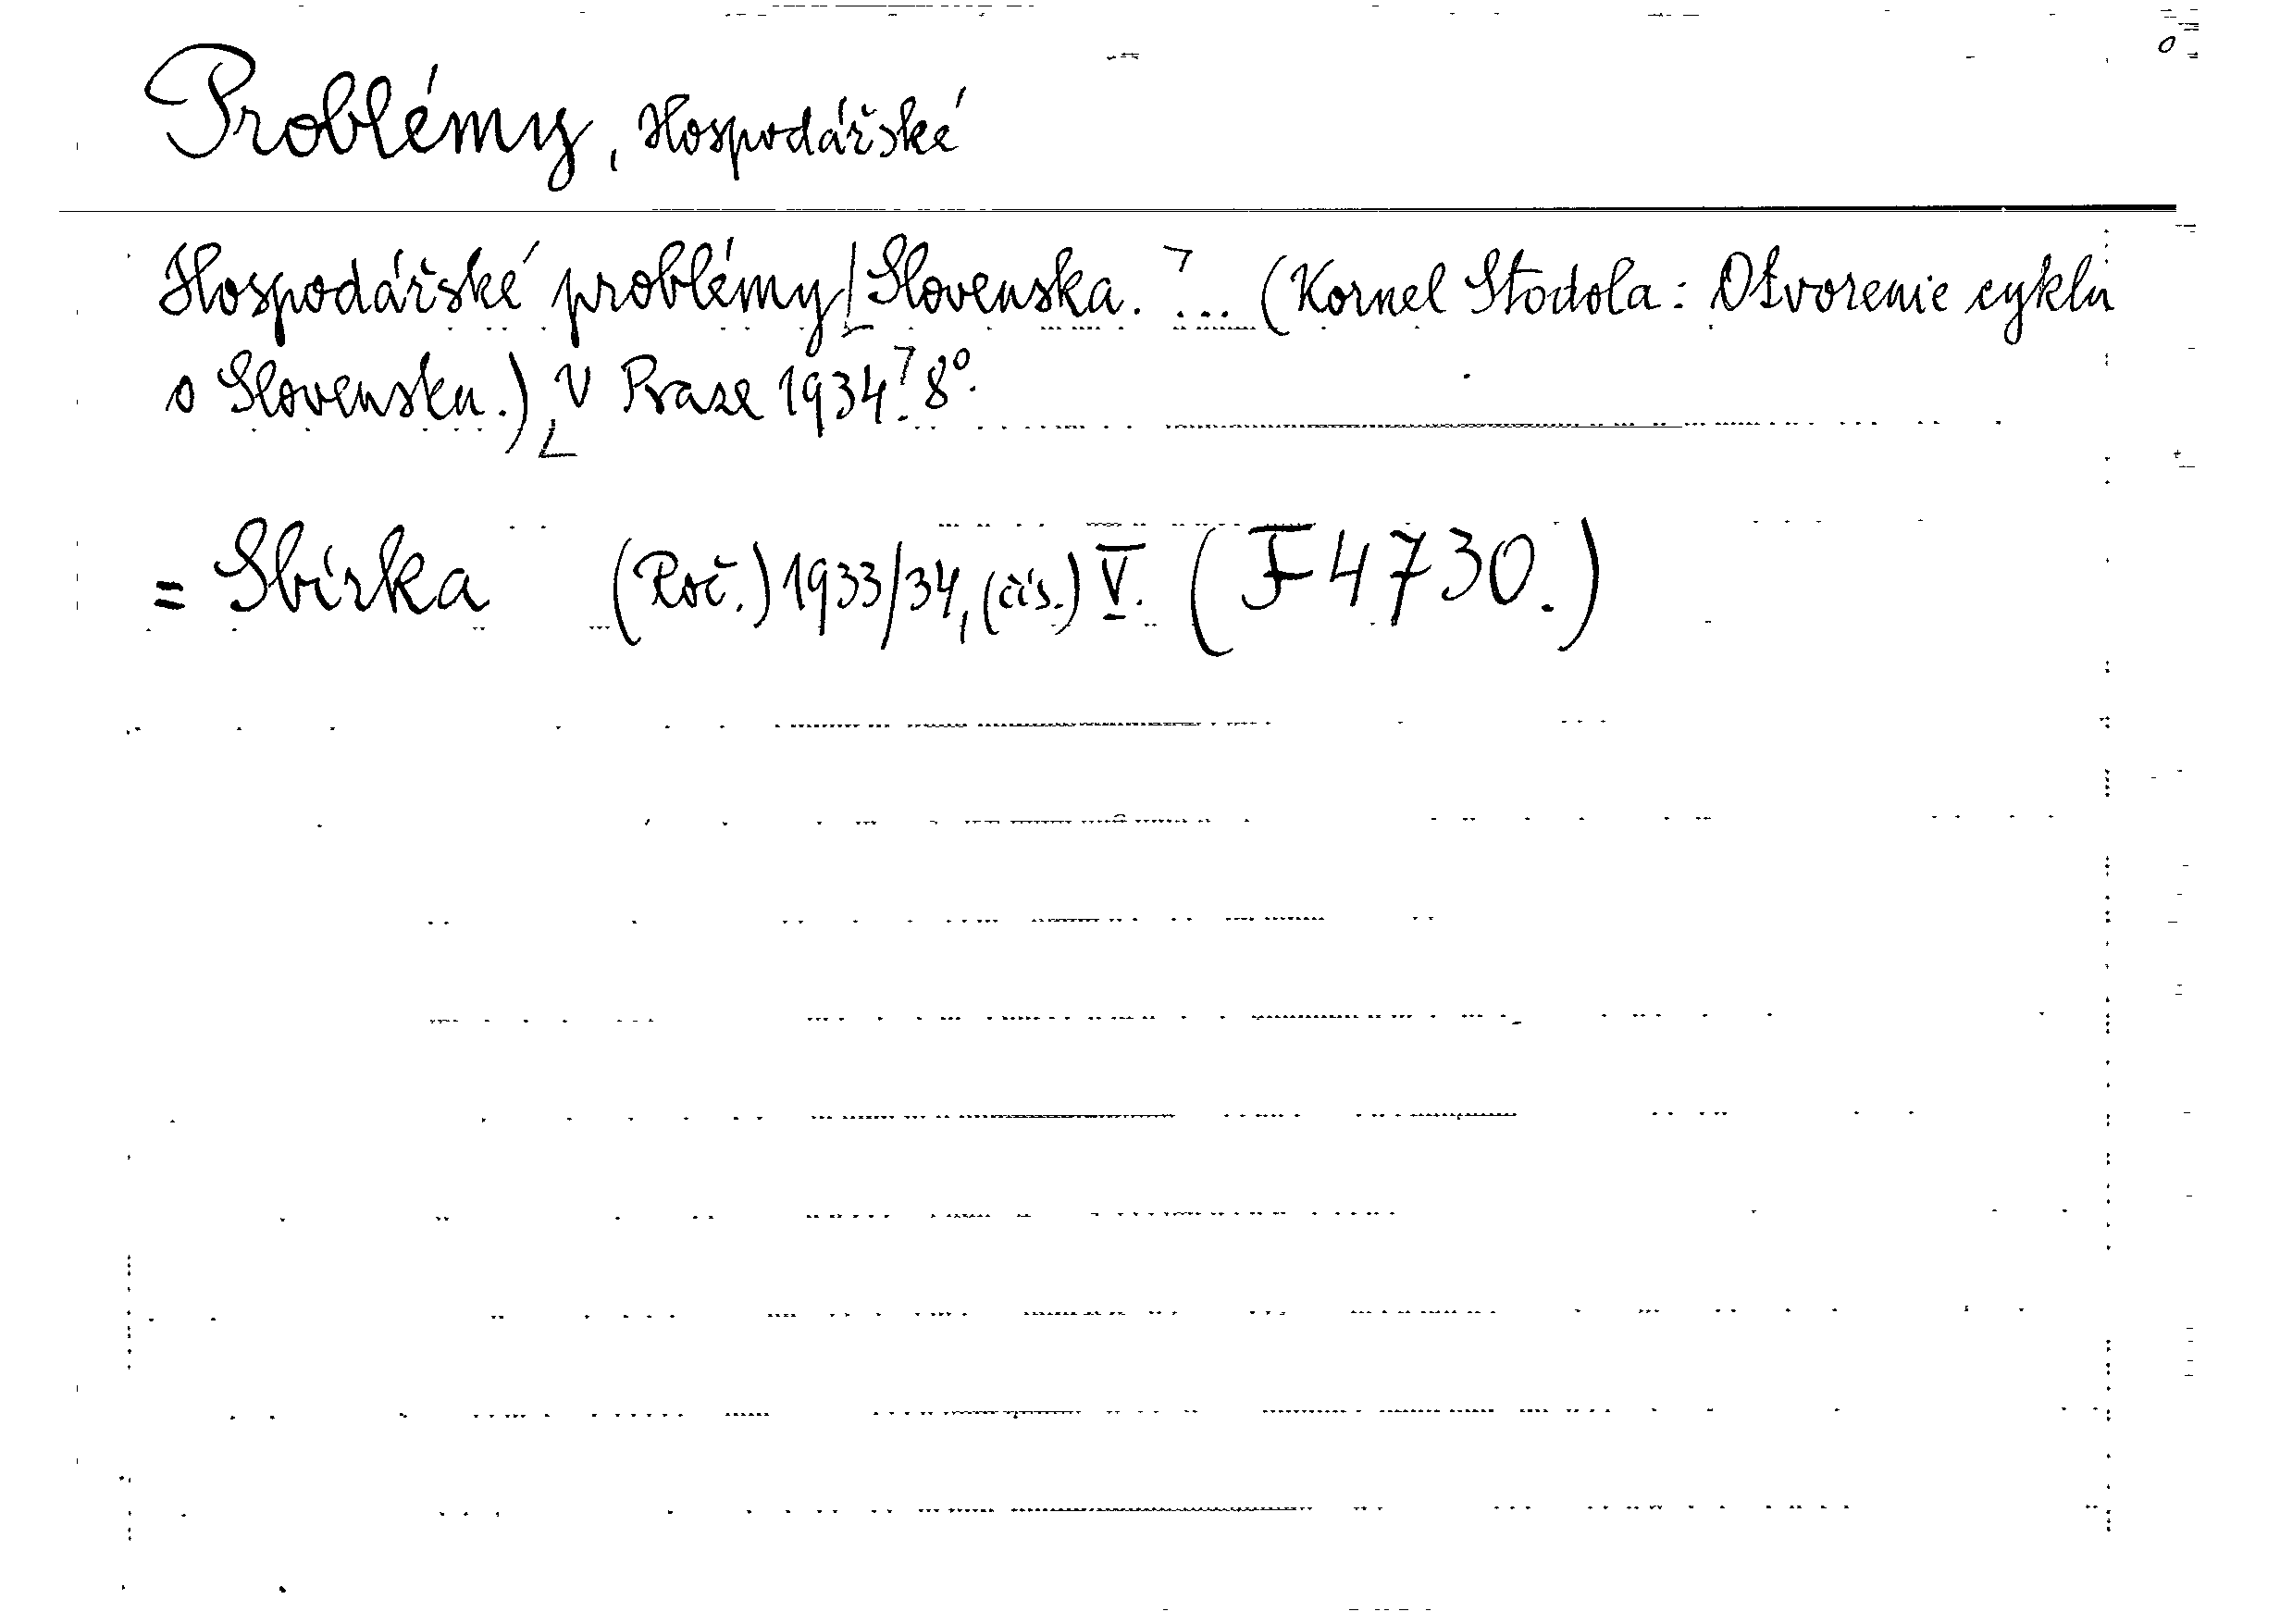 Problémy, Hospodářské
Hospodářské problémy Slovenska. ... (Kornel Stodola: Otvorenie cyklu
o Slovensku.) V Praze 1934. 8°.
= Sbírka (Roč.) 1933/34, (čís.) V. (F 4730.)